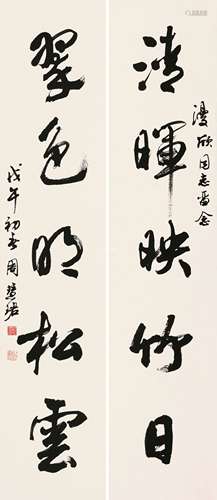 漫欣同志留念
清晖映竹日
翠色明松雲
戊午初春周慧珺